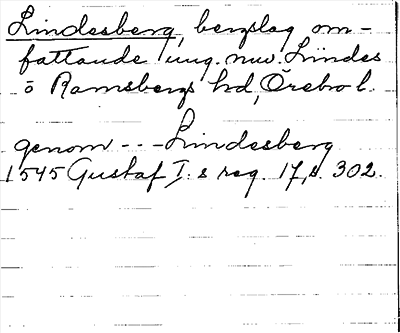 Lindesberg, bergslag om-
fattande ung. nuv. Lindes
o Ramsbergs hd, Örebro l.
genom - - - Lindesberg
1545 Gustaf I:s reg. 17, s. 302.